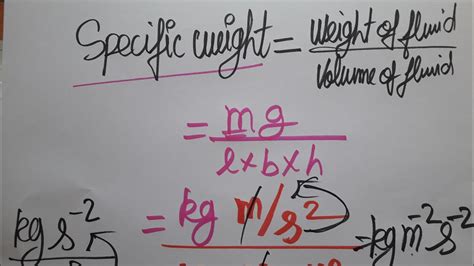 Specific weight = Weight of fluid / Volume of fluid
= mg / l×b×h
kg s⁻² = kg m/s² = kg m⁻² s⁻²